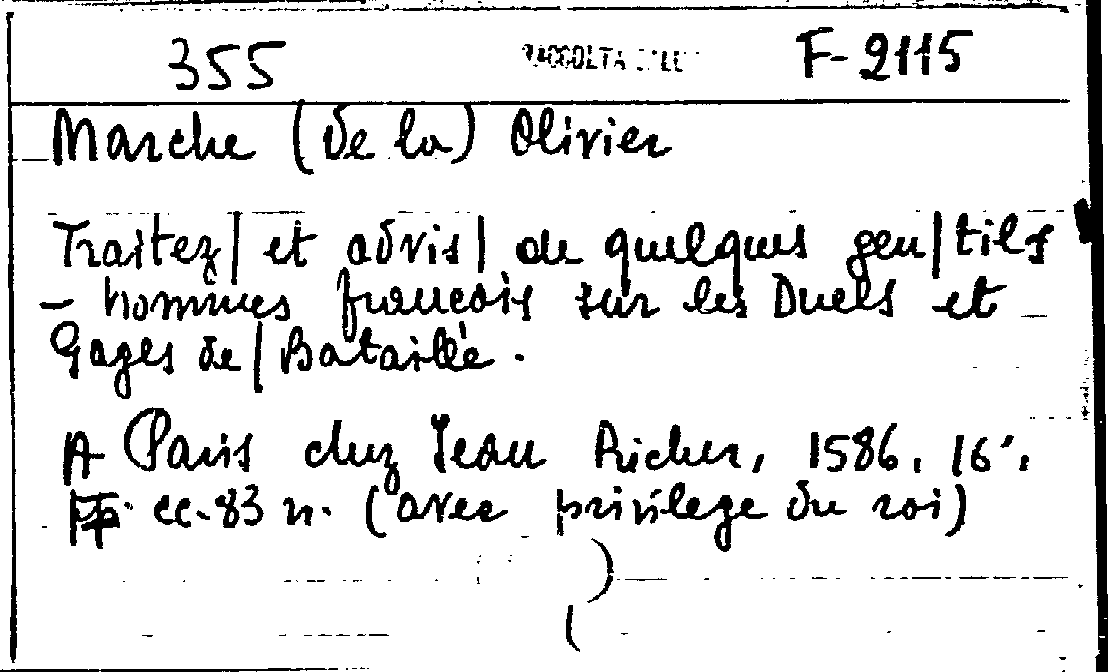 355 RACCOLTA F-2115
Marche (de la) Olivier
Traitez| et advis| de quelques gen|tils
- hommes francois sur les Duels et
Gages de| Bataille.
A Paris chez Jean Richer, 1586. 16°.
cc. 83 n. (avec privilege du roi)